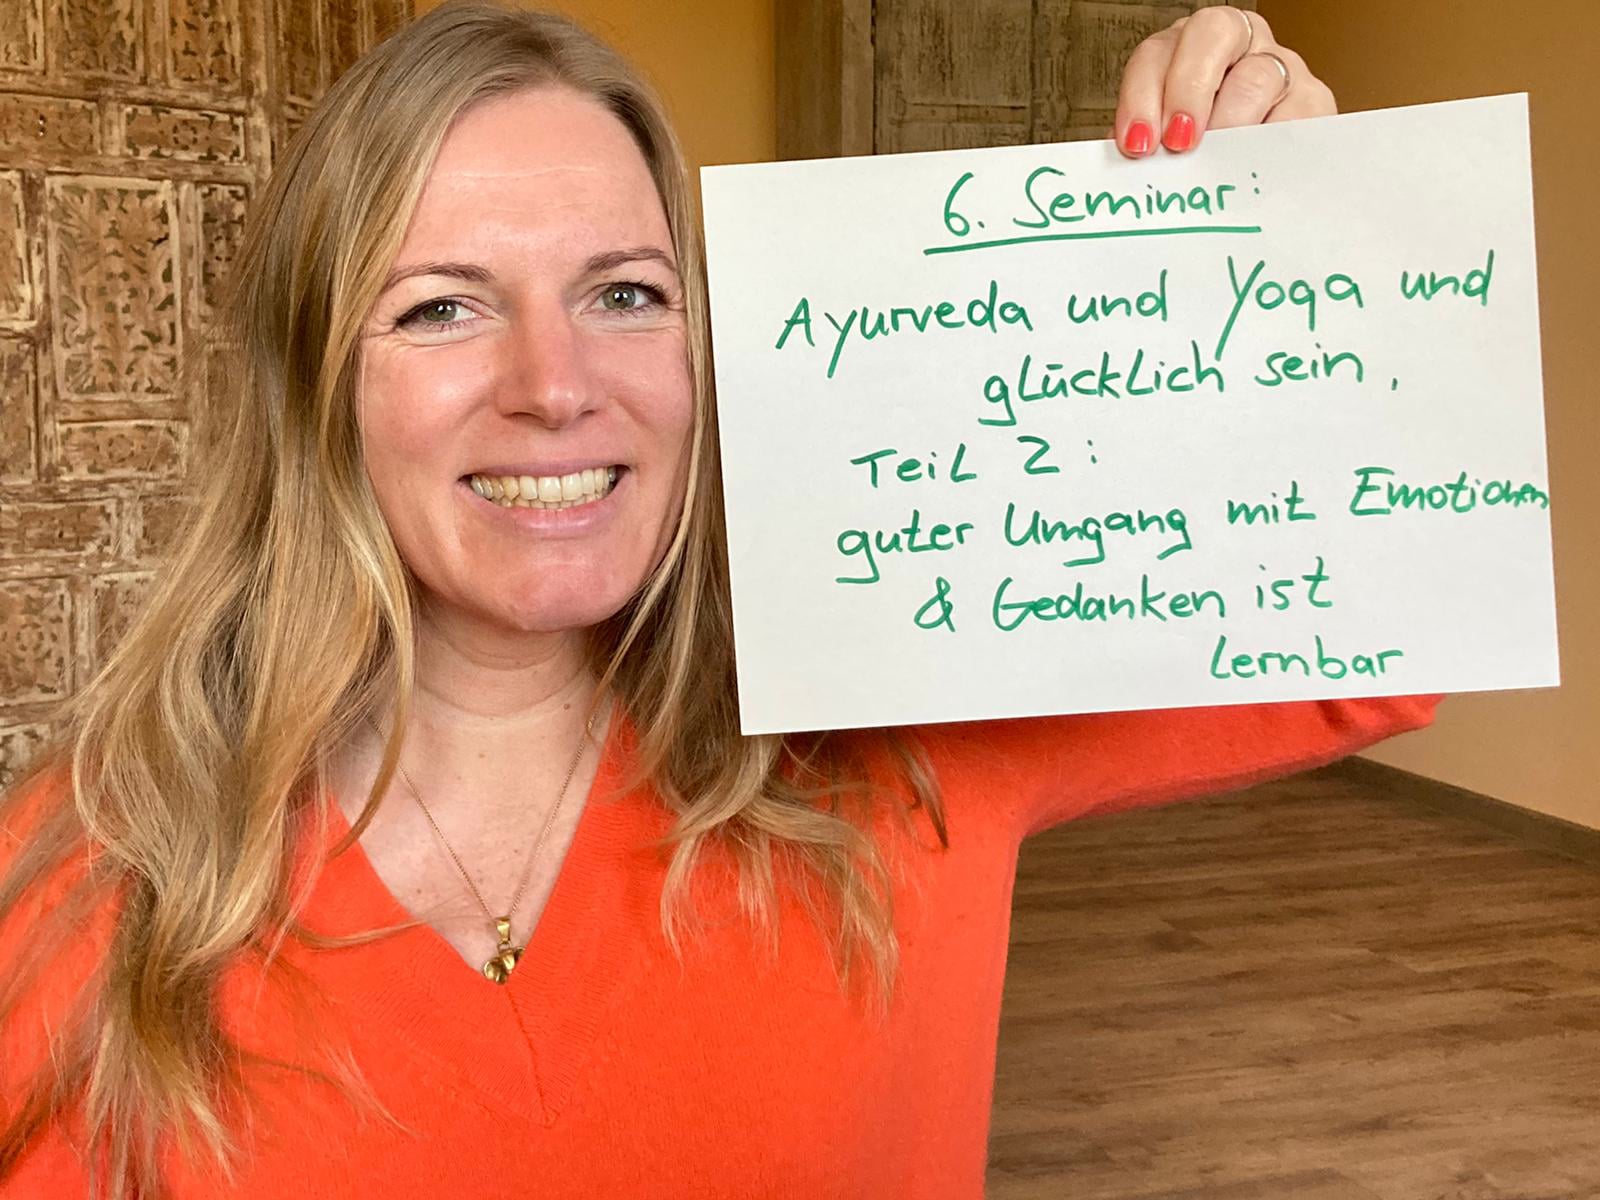 6. Seminar:
Ayurveda und Yoga und
glücklich sein,
Teil 2:
guter Umgang mit Emotionen
& Gedanken ist
lernbar